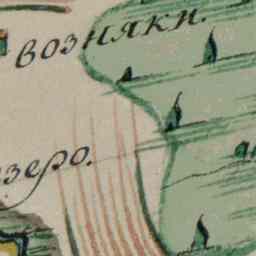 возняки.
зеро.